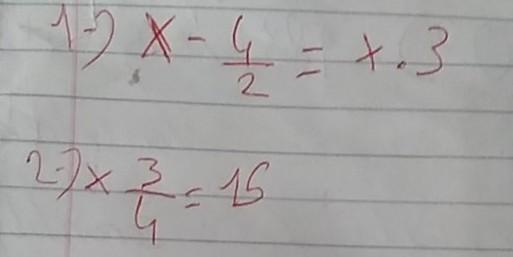 1-) x - 4/2 = x . 3
2-) x 3/4 = 15